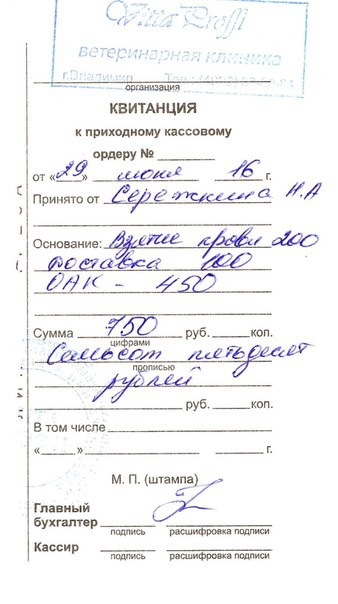 Vitta Proffi
ветеринарная клиника
г.Владимир
организация
КВИТАНЦИЯ
к приходному кассовому
ордеру №
от «29» июня 16 г.
Принято от Сережкина Н.А
Основание: Взятие крови 200
доставка 100
ОАК - 450
Сумма 750 руб. коп.
цифрами
Семьсот пятьдесят
прописью
рублей
руб. коп.
В том числе
« » г.
М. П. (штампа)
Главный
бухгалтер
подпись расшифровка подписи
Кассир
подпись расшифровка подписи